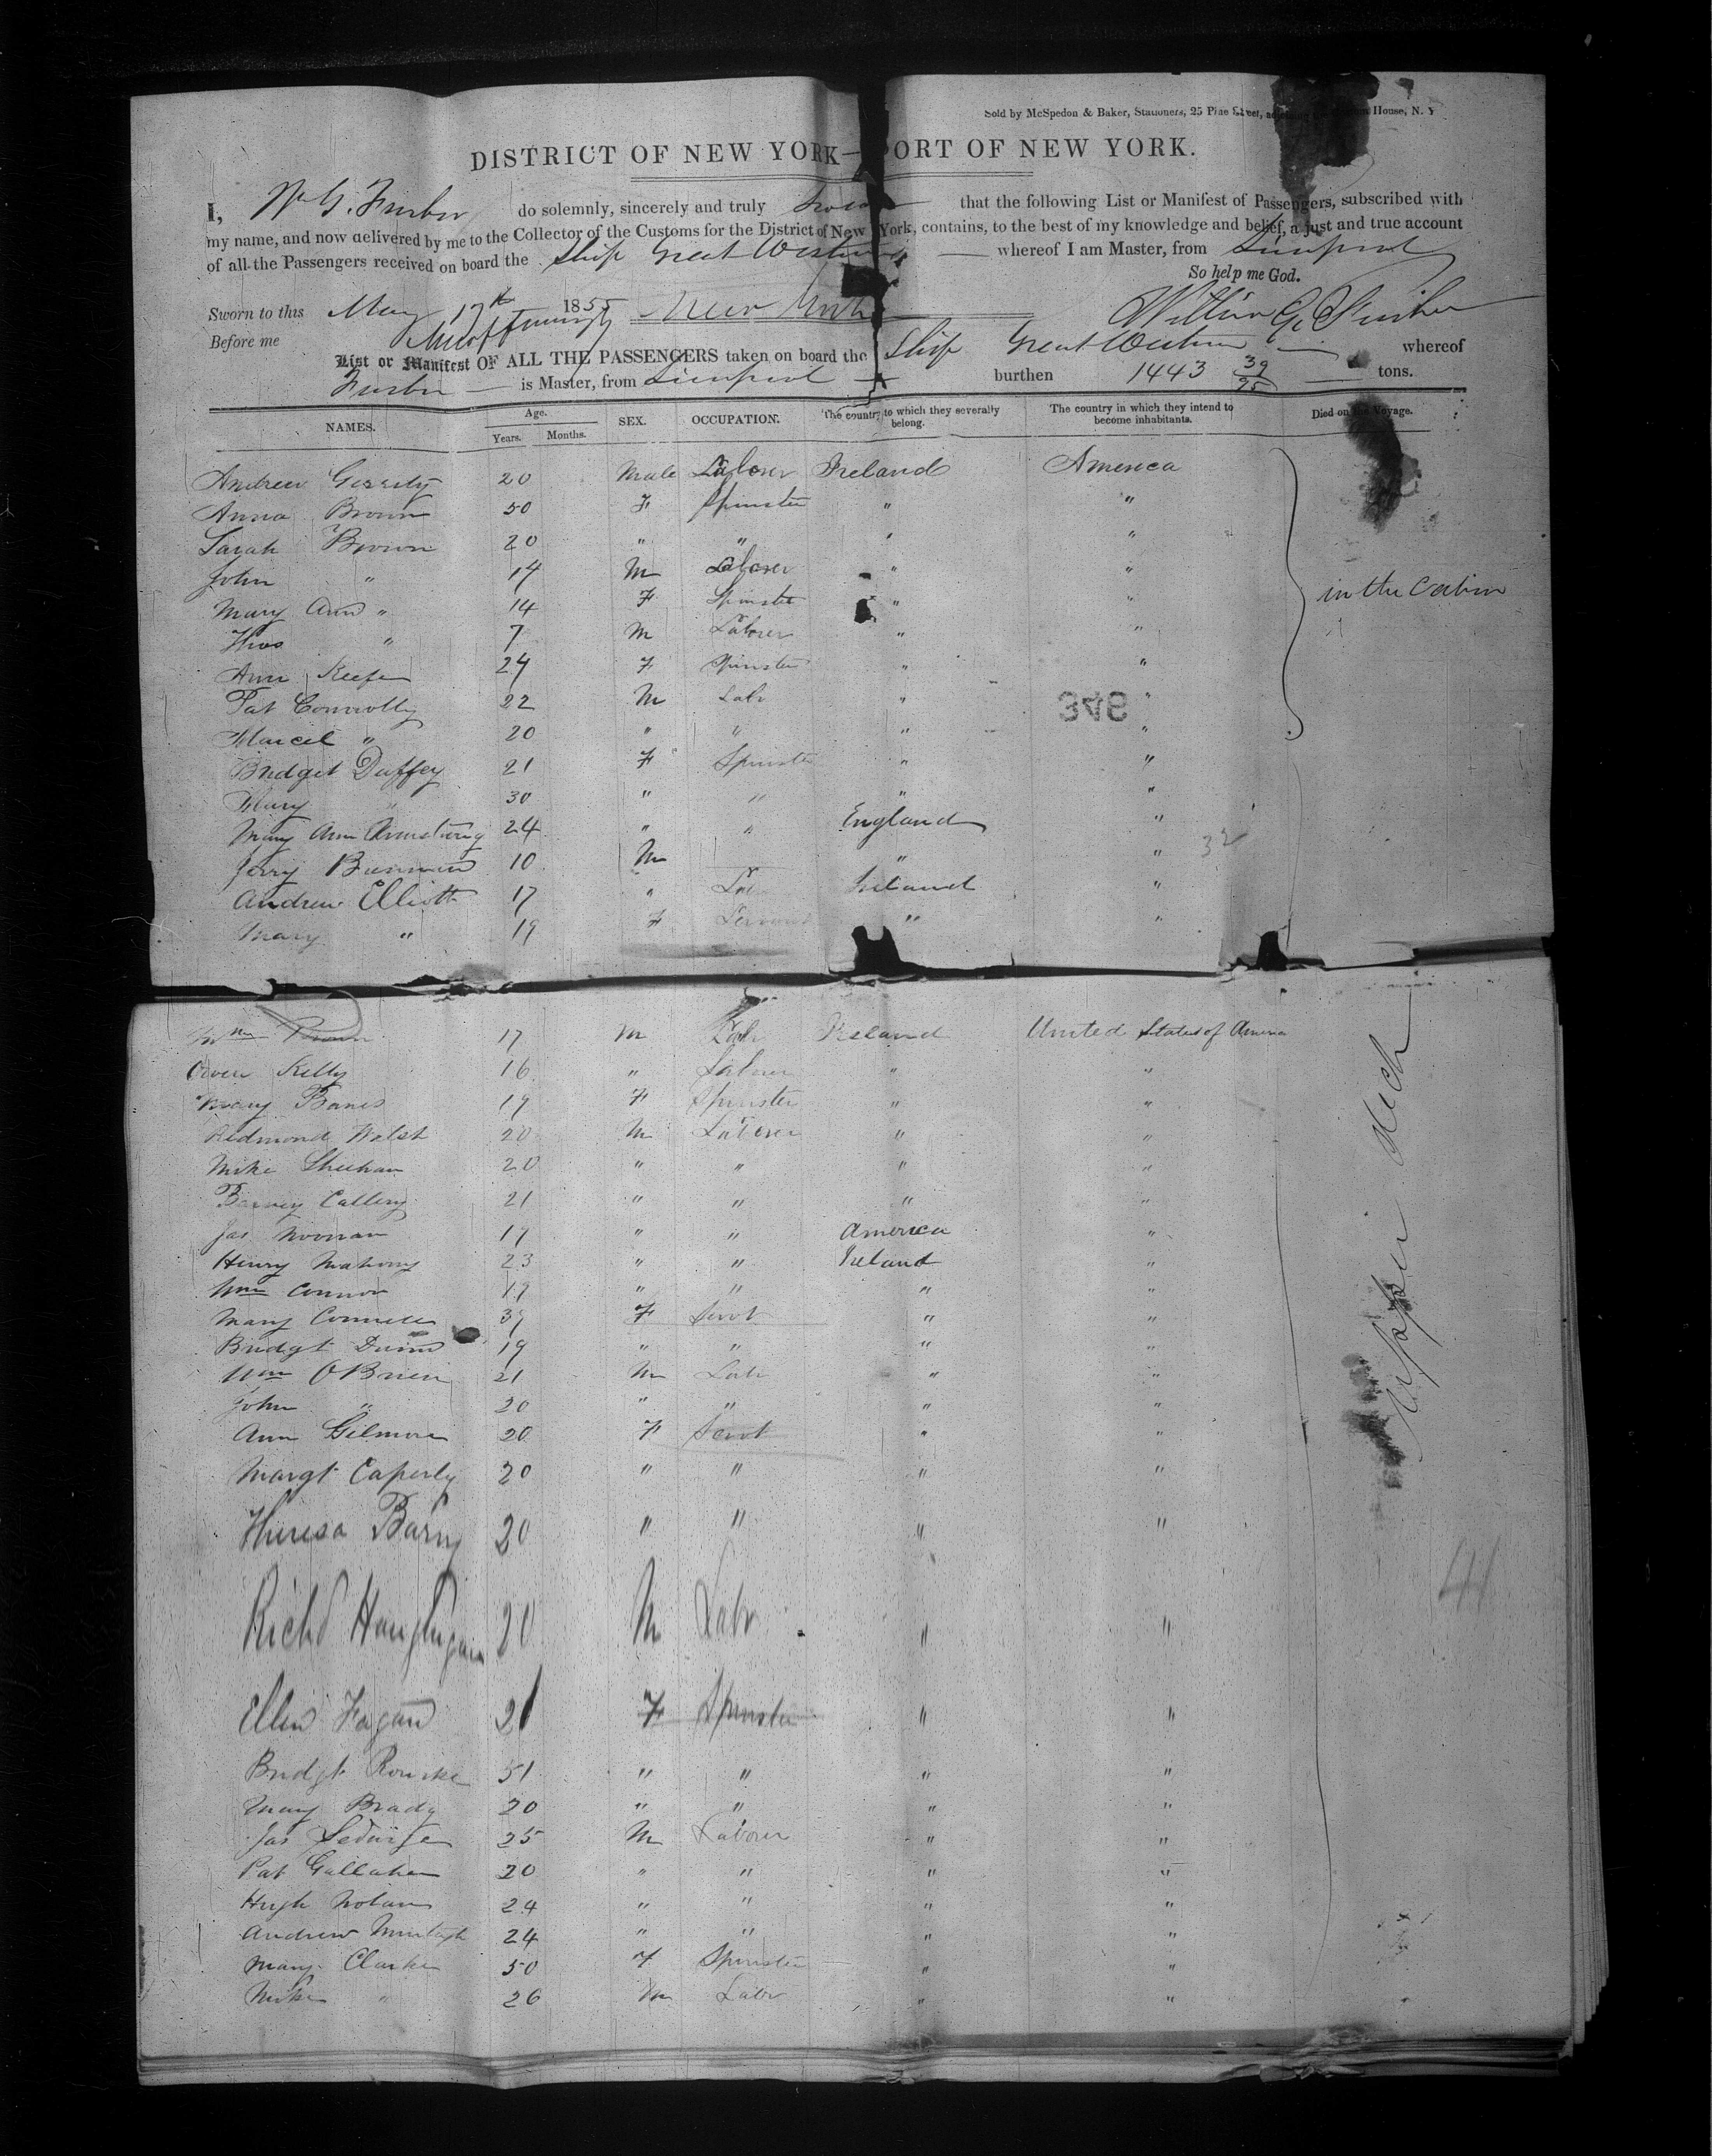 Sold by McSpedon & Baker, Stationers, 25 Pine Street, House, N. Y
DISTRICT OF NEW YORK—PORT OF NEW YORK.
I, Wm G. Furber do solemnly, sincerely and truly swear that the following List or Manifest of Passengers, subscribed with
my name, and now delivered by me to the Collector of the Customs for the District of New York, contains, to the best of my knowledge and belief, a just and true account
of all the Passengers received on board the Ship Great Western whereof I am Master, from Liverpool
So help me God.
Sworn to this May 17th 1855 New York William G. Furber
Before me
List or Manifest OF ALL THE PASSENGERS taken on board the Ship Great Western whereof
Furber is Master, from Liverpool burthen 1443 39/95 tons.
NAMES. Age. Years. Months. SEX. OCCUPATION. The country to which they severally belong. The country in which they intend to become inhabitants. Died on the Voyage.
Andrew Gerrity 20 Male Laborer Ireland America
Anna Brown 50 F Spinster " "
Sarah Brown 20 " " " "
John " 14 M Laborer " "
Mary Ann " 14 F Spinster " " in the Cabin
Thos " 7 M Laborer " "
Ann Keefe 24 F Spinster " "
Pat Connolly 22 M Labr " "
348
" 20 " " " "
Bridget Duffey 21 F Spinster " "
Mary " 30 " " " "
Mary Ann Armstrong 24 " " England "
Jerry 10 M " " 32
Andrew Elliott 17 " Lab Ireland "
Mary " 19 F Servant " "
Wm Brown 17 M Labr Ireland United States of America
Owen Kelly 16 " Laborer " "
Mary Banes 19 F Spinster " "
Redmond Welsh 20 M Laborer " "
Mike Sheehan 20 " " " "
Barney Callery 21 " " " "
Jas Noonan 19 " " America "
Henry Mahony 23 " " Ireland "
Wm Connor 19 " " " "
Mary Connell 39 F Servt " "
Bridgt Dunn 19 " " " "
Wm OBrien 21 M Labr " "
John " 20 " " " "
Ann Gilmore 20 F Servt " "
Upper deck
Margt Caperly 20 " " " "
Theresa Barry 20 " " " "
Richd 20 M Labr " "
41
Ellen Fagan 21 F Spinster " "
Bridgt Rourke 51 " " " "
Mary Brady 20 " " " "
Jas Ledwige 25 M Laborer " "
Pat Gallaher 20 " " " "
Hugh Nolan 24 " " " "
Andrew Murtagh 24 " " " "
Mary Clarke 50 F Spinster " "
Mike " 26 M Labr " "